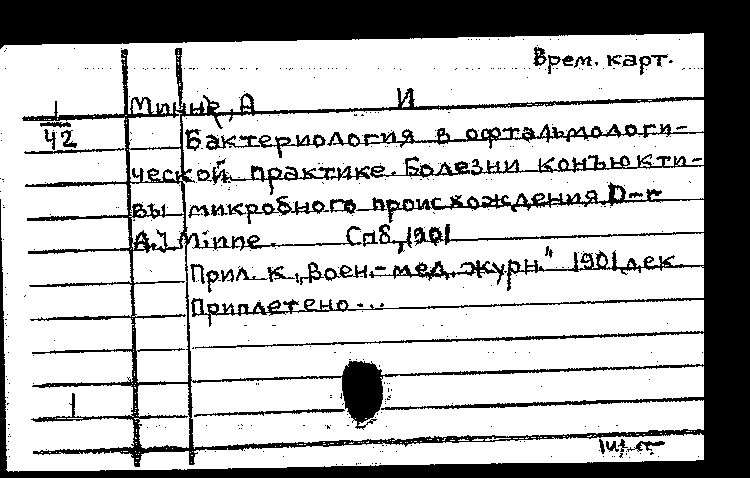 Врем. карт.
Минне, А И
1/42
Бактериология в офтальмологи-
ческой практике. Болезни конъюкти-
вы микробного происхождения D-r
A.J Minne. Спб, 1901
Прил. к „Воен.-мед. журн." 1901, дек.
Приплетено...
1